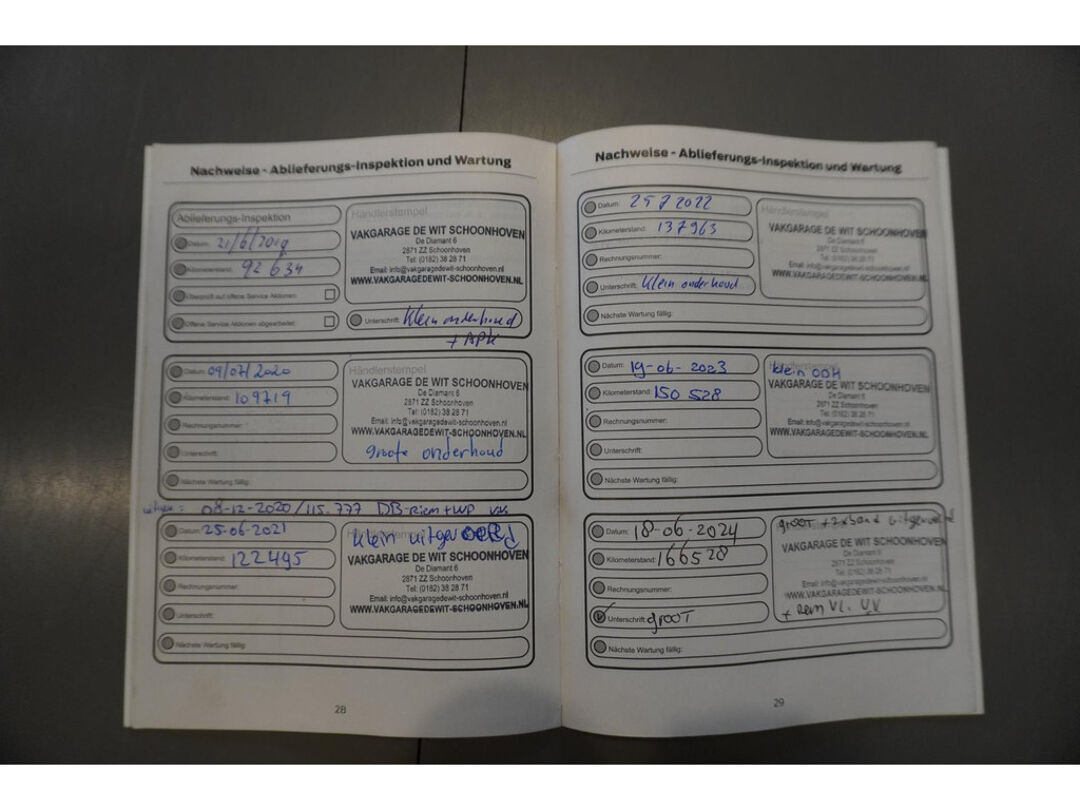 Nachweise - Ablieferungs-Inspektion und Wartung
Ablieferungs-Inspektion
Datum: 21/6/2019
Kilometerstand: 92 634
Überprüft auf offene Service Aktionen:
Offene Service Aktionen abgearbeitet:
Händlerstempel
VAKGARAGE DE WIT SCHOONHOVEN
De Diamant 6
2871 ZZ Schoonhoven
Tel: (0182) 38 28 71
Email: info@vakgaragedewit-schoonhoven.nl
WWW.VAKGARAGEDEWIT-SCHOONHOVEN.NL
Unterschrift: Klein onderhoud
+ APK
Datum: 09/07/2020
Kilometerstand: 109719
Rechnungsnummer:
Unterschrift:
Händlerstempel
VAKGARAGE DE WIT SCHOONHOVEN
De Diamant 6
2871 ZZ Schoonhoven
Tel: (0182) 38 28 71
Email: info@vakgaragedewit-schoonhoven.nl
WWW.VAKGARAGEDEWIT-SCHOONHOVEN.NL
groote onderhoud
Nächste Wartung fällig:
08-12-2020/115.777 DB-Riem+WP
Datum: 25-06-2021
Kilometerstand: 122495
Rechnungsnummer:
Unterschrift:
klein uitgevoerd
VAKGARAGE DE WIT SCHOONHOVEN
De Diamant 6
2871 ZZ Schoonhoven
Tel: (0182) 38 28 71
Email: info@vakgaragedewit-schoonhoven.nl
WWW.VAKGARAGEDEWIT-SCHOONHOVEN.NL
Nächste Wartung fällig:
28
Nachweise - Ablieferungs-Inspektion und Wartung
Datum: 25 7 2022
Kilometerstand: 137963
Rechnungsnummer:
Unterschrift: Klein onderhoud
Händlerstempel
VAKGARAGE DE WIT SCHOONHOVEN
De Diamant 6
2871 ZZ Schoonhoven
Tel: (0182) 38 28 71
Email: info@vakgaragedewit-schoonhoven.nl
WWW.VAKGARAGEDEWIT-SCHOONHOVEN.NL
Nächste Wartung fällig:
Datum: 19-06-2023
Kilometerstand: 150 528
Rechnungsnummer:
Unterschrift:
Händlerstempel
klein ODH
VAKGARAGE DE WIT SCHOONHOVEN
De Diamant 6
2871 ZZ Schoonhoven
Tel: (0182) 38 28 71
Email: info@vakgaragedewit-schoonhoven.nl
WWW.VAKGARAGEDEWIT-SCHOONHOVEN.NL
Nächste Wartung fällig:
Datum: 18-06-2024
Kilometerstand: 166528
Rechnungsnummer:
Unterschrift: groot
groot + 2x band uitgevoerd
VAKGARAGE DE WIT SCHOONHOVEN
De Diamant 6
2871 ZZ Schoonhoven
Tel: (0182) 38 28 71
Email: info@vakgaragedewit-schoonhoven.nl
WWW.VAKGARAGEDEWIT-SCHOONHOVEN.NL
+ rem Vl. VV
Nächste Wartung fällig:
29